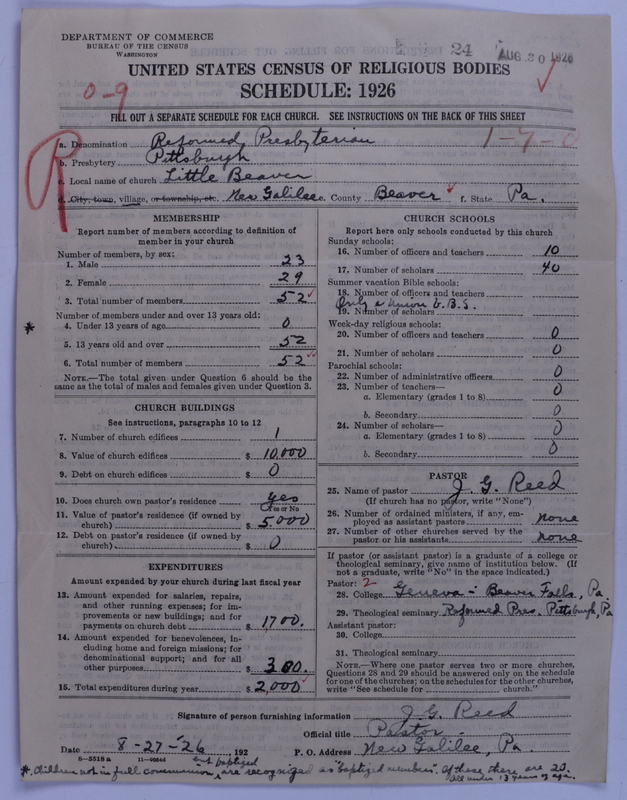 DEPARTMENT OF COMMERCE
BUREAU OF THE CENSUS
WASHINGTON
24
AUG 30 1926
UNITED STATES CENSUS OF RELIGIOUS BODIES
SCHEDULE: 1926
0-9
FILL OUT A SEPARATE SCHEDULE FOR EACH CHURCH. SEE INSTRUCTIONS ON THE BACK OF THIS SHEET
R
1-7-0
a. Denomination Reformed Presbyterian
b. Presbytery Pittsburgh
c. Local name of church Little Beaver
d. City, town, village, or township, etc. New Galilee e. County Beaver f. State Pa.
MEMBERSHIP
Report number of members according to definition of
member in your church
Number of members, by sex:
1. Male 23
2. Female 29
3. Total number of members 52
Number of members under and over 13 years old:
* 4. Under 13 years of age 0
5. 13 years old and over 52
6. Total number of members 52
NOTE.—The total given under Question 6 should be the
same as the total of males and females given under Question 3.
CHURCH BUILDINGS
See instructions, paragraphs 10 to 12
7. Number of church edifices 1
8. Value of church edifices $ 10,000
9. Debt on church edifices $ 0
10. Does church own pastor's residence yes
Yes or No
11. Value of pastor's residence (if owned by
church) $ 5000
12. Debt on pastor's residence (if owned by
church) $ 0
EXPENDITURES
Amount expended by your church during last fiscal year
13. Amount expended for salaries, repairs,
and other running expenses; for im-
provements or new buildings; and for
payments on church debt $ 1700.
14. Amount expended for benevolences, in-
cluding home and foreign missions; for
denominational support; and for all
other purposes $ 300.
15. Total expenditures during year $ 2,000
CHURCH SCHOOLS
Report here only schools conducted by this church
Sunday schools:
16. Number of officers and teachers 10
17. Number of scholars 40
Summer vacation Bible schools:
18. Number of officers and teachers
Only a union V.B.S.
19. Number of scholars
Week-day religious schools:
20. Number of officers and teachers 0
21. Number of scholars 0
Parochial schools:
22. Number of administrative officers 0
23. Number of teachers—
a. Elementary (grades 1 to 8) 0
b. Secondary 0
24. Number of scholars—
a. Elementary (grades 1 to 8) 0
b. Secondary 0
PASTOR
25. Name of pastor J. G. Reed
(If church has no pastor, write "None")
26. Number of ordained ministers, if any, em-
ployed as assistant pastors none
27. Number of other churches served by the
pastor or his assistants none
If pastor (or assistant pastor) is a graduate of a college or
theological seminary, give name of institution below. (If
not a graduate, write "No" in the space indicated.)
Pastor: 2
28. College Geneva - Beaver Falls, Pa.
29. Theological seminary Reformed Pres. Pittsburgh, Pa
Assistant pastor:
30. College
31. Theological seminary
NOTE.—Where one pastor serves two or more churches,
Questions 28 and 29 should be answered only on the schedule
for one of the churches; on the schedules for the other churches,
write "See schedule for church."
Signature of person furnishing information J. G. Reed
Official title Pastor
Date 8-27-26 192 P. O. Address New Galilee, Pa.
8-5518a 11-90846
but baptized
*. Children not in full communion, are recognized as "baptized members". Of these there are 20.
all under 13 years of age.